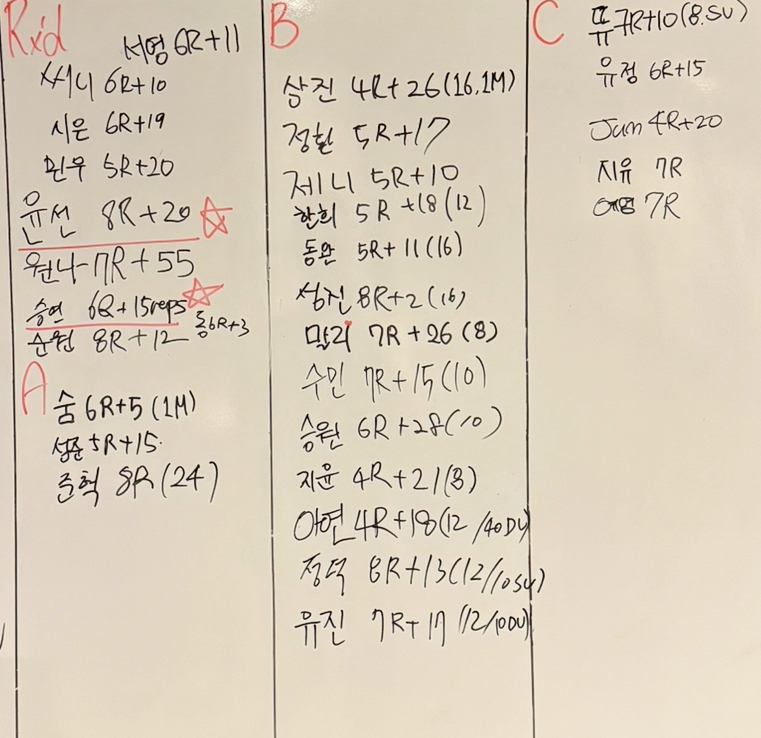 Rx'd
서영 6R+11
써니 6R+10
시은 6R+19
민우 5R+20
윤선 8R+20
원나 7R+55
승연 6R+15reps
순원 8R+12 동6R+3
A
숨 6R+5 (1M)
성준 5R+15.
준혁 8R (24)
B
상진 4R+26 (16,1M)
정훤 5R+17
제니 5R+10
한희 5R +18 (12)
동완 5R+11 (16)
성진 8R+2 (16)
말리 7R+26 (8)
수민 7R+15 (10)
승원 6R+28 (10)
지윤 4R+21 (8)
아연 4R+18 (12/40DU)
정덕 8R+13 (12/10SU)
유진 7R+17 (12/10DU)
C
쀼 7R+10 (8.SU)
유정 6R+15
Jum 4R+20
지유 7R
7R